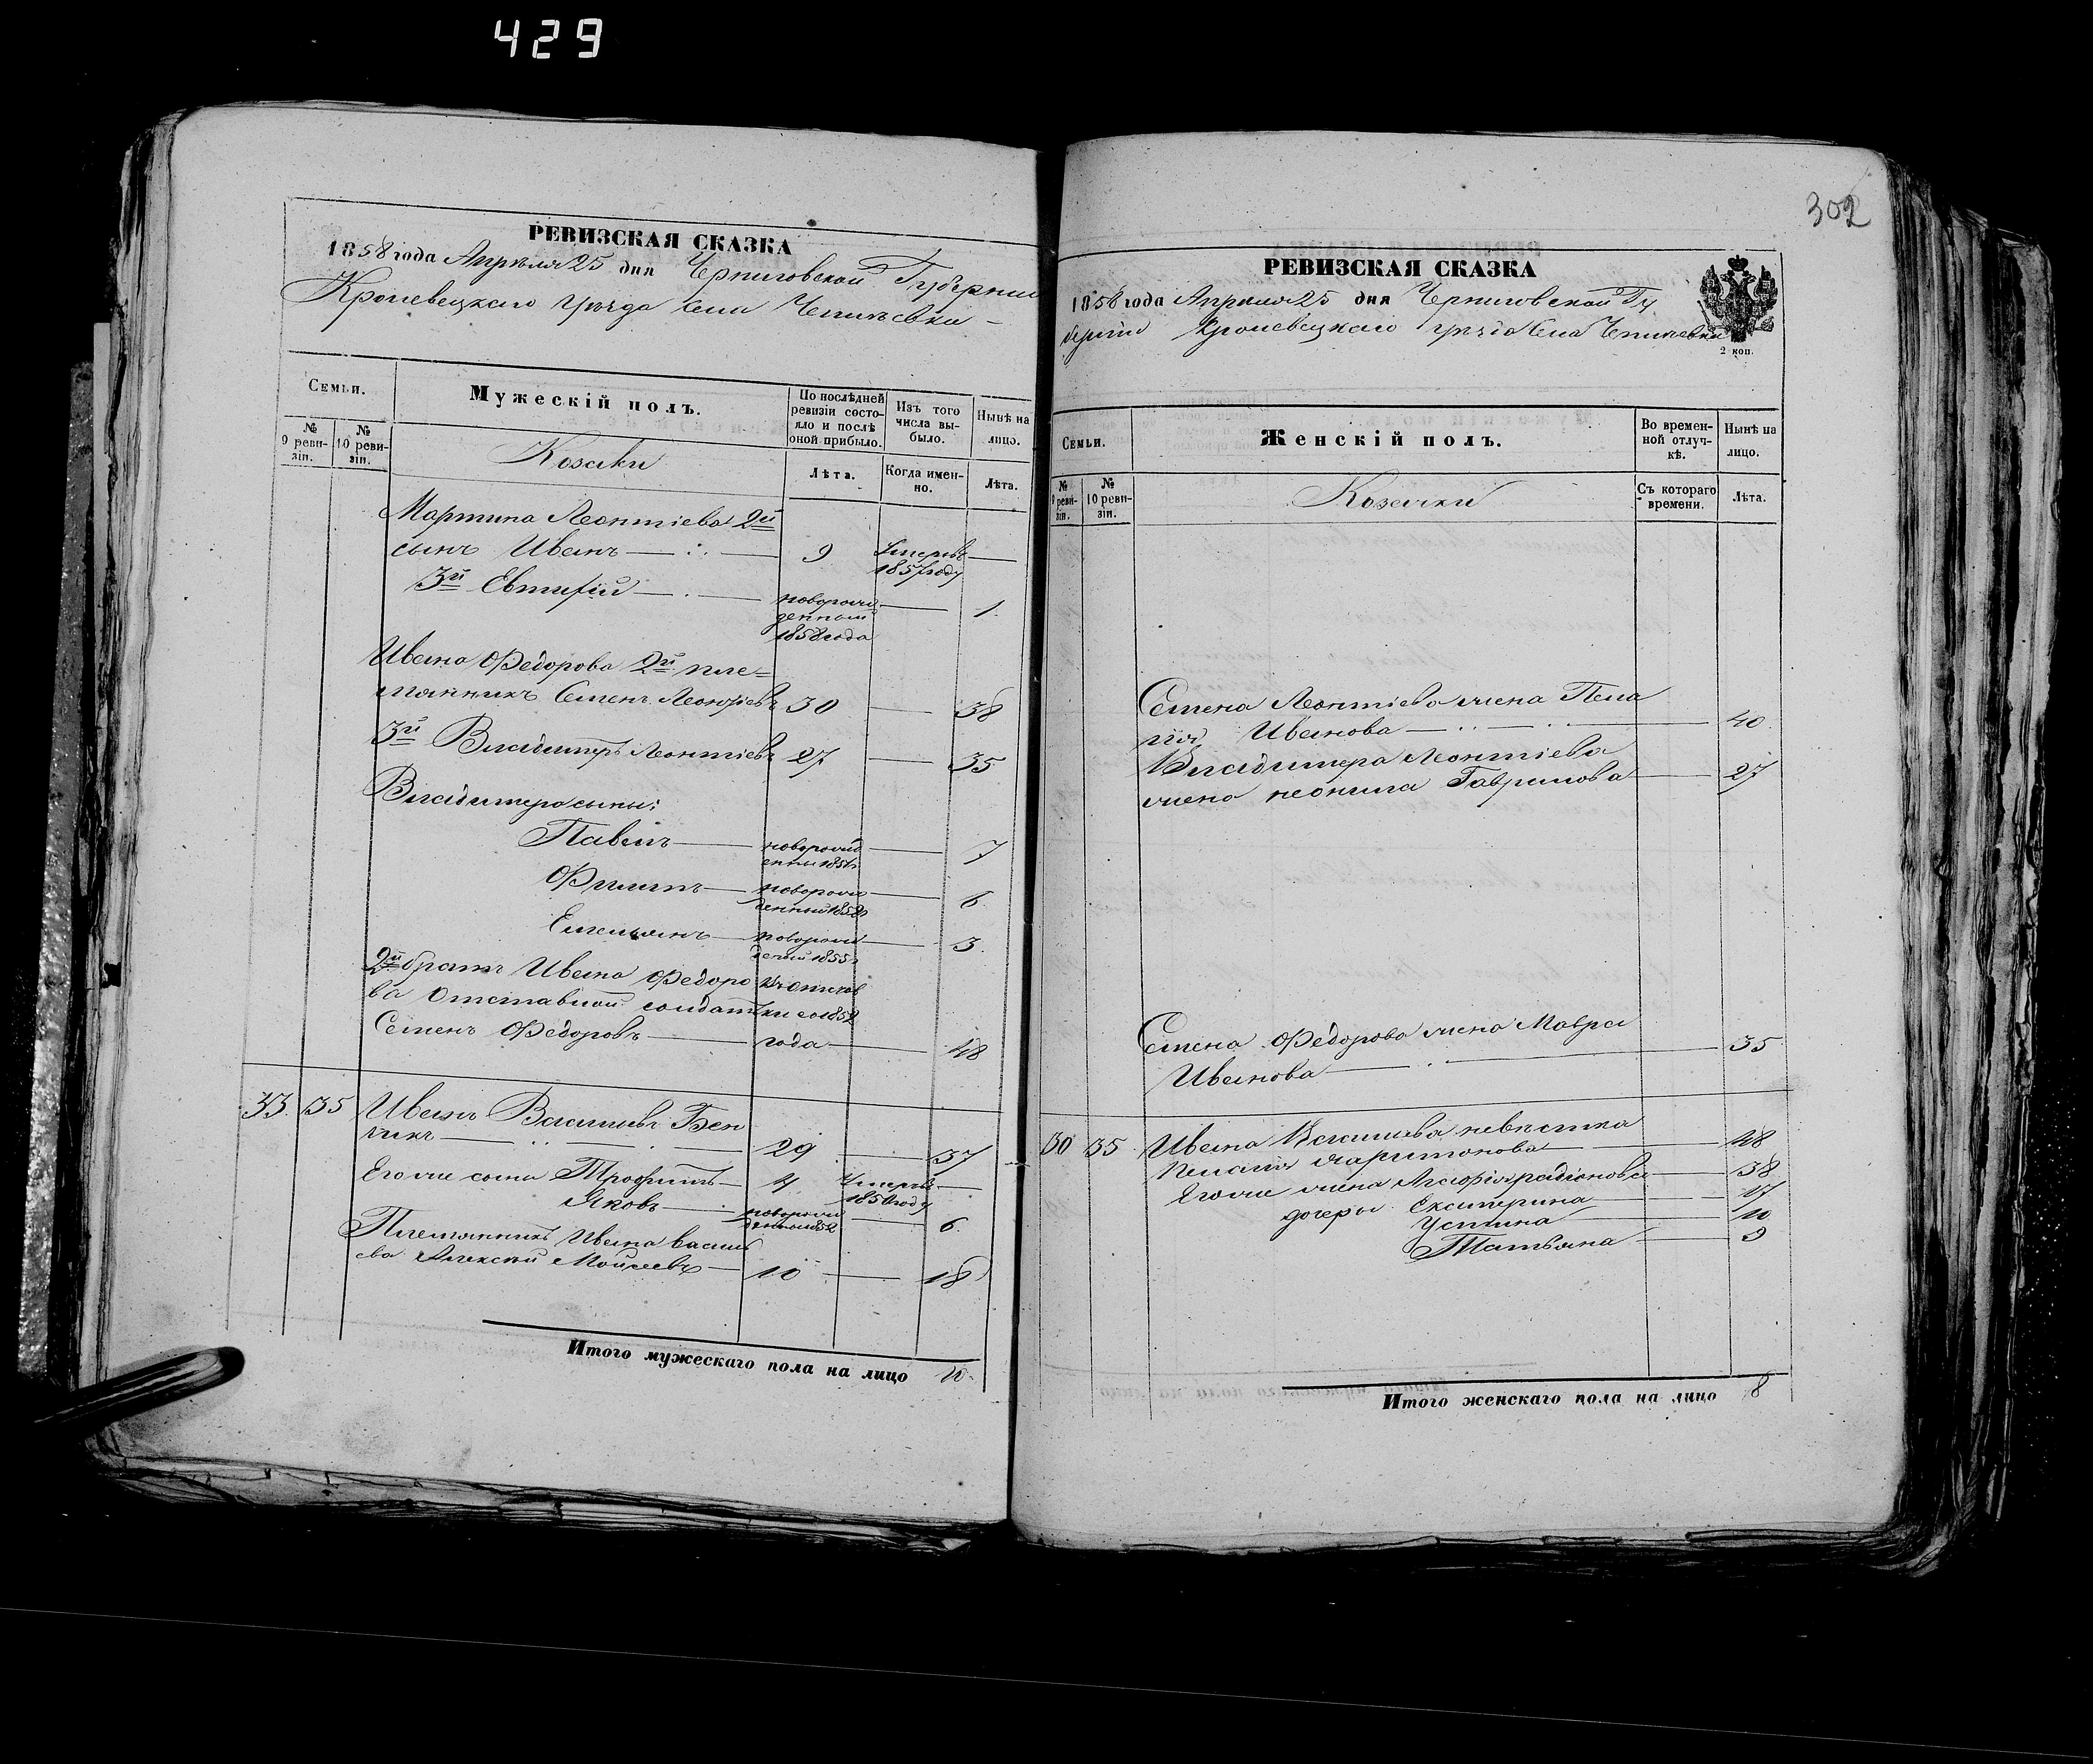 429
РЕВИЗСКАЯ СКАЗКА
1858 года Апреля 25 дня Черниговской Губернии
Кролевецкаго уезда села
Семьи.
Мужескій полъ.
По послѣдней ревизіи состояло и послѣ оной прибыло.
Изъ того числа выбыло.
Нынѣ на лицо.
№ 9 ревизіи.
№ 10 ревизіи.
Козаки
Лѣта.
Когда именно.
Лѣта.
Мартина Леонтіева 2й
сынъ Иванъ 9 Умеръ 1857 году
3й Евтифій новорожденный 1858 года 1
Ивана Федорова 2й пле=
мянникъ Семенъ Леонтіевъ 30 38
3й Владимеръ Леонтіевъ 27 35
Владимера сыны:
Павелъ новорожденны 1851 7
Филипъ новорожденный 1852 6
Емельянъ новорожденый 1855 3
2й братъ Ивана Федоро
ва Отставной солдатъ 1852
Семенъ Федоровъ года 48
33. 35 Иванъ Васильевъ
29 37
Его же сыны Трофимъ 4 Умеръ 1850 году
Яковъ новорожденный 1852 6
Племянникъ Ивана Василь
ева Алексей Мойсеевъ 10 18
Итого мужескаго пола на лицо
302
РЕВИЗСКАЯ СКАЗКА
1858 года Апреля 25 дня Черниговской Гу
берніи Кролевецкаго уезда села
2 коп.
Семьи.
Женскій полъ.
Во временной отлучкѣ.
Нынѣ на лицо.
№ 9 ревизіи.
№ 10 ревизіи.
Козачки
Съ котораго времени.
Лѣта.
Семена Леонтіева жена Пела
гия Иванова 40
Владимера Леонтіева
жена неонила Гаврилова 27
Семена Федорова жена Мавра
Иванова 35
30 35 Ивана Васильева невестка
Пелагия Харитонова 48
Его же жена Агафія радіонова 38
дочеры Екатерина 17
Устина 10
Татьяна 9
Итого женскаго пола на лицо 8